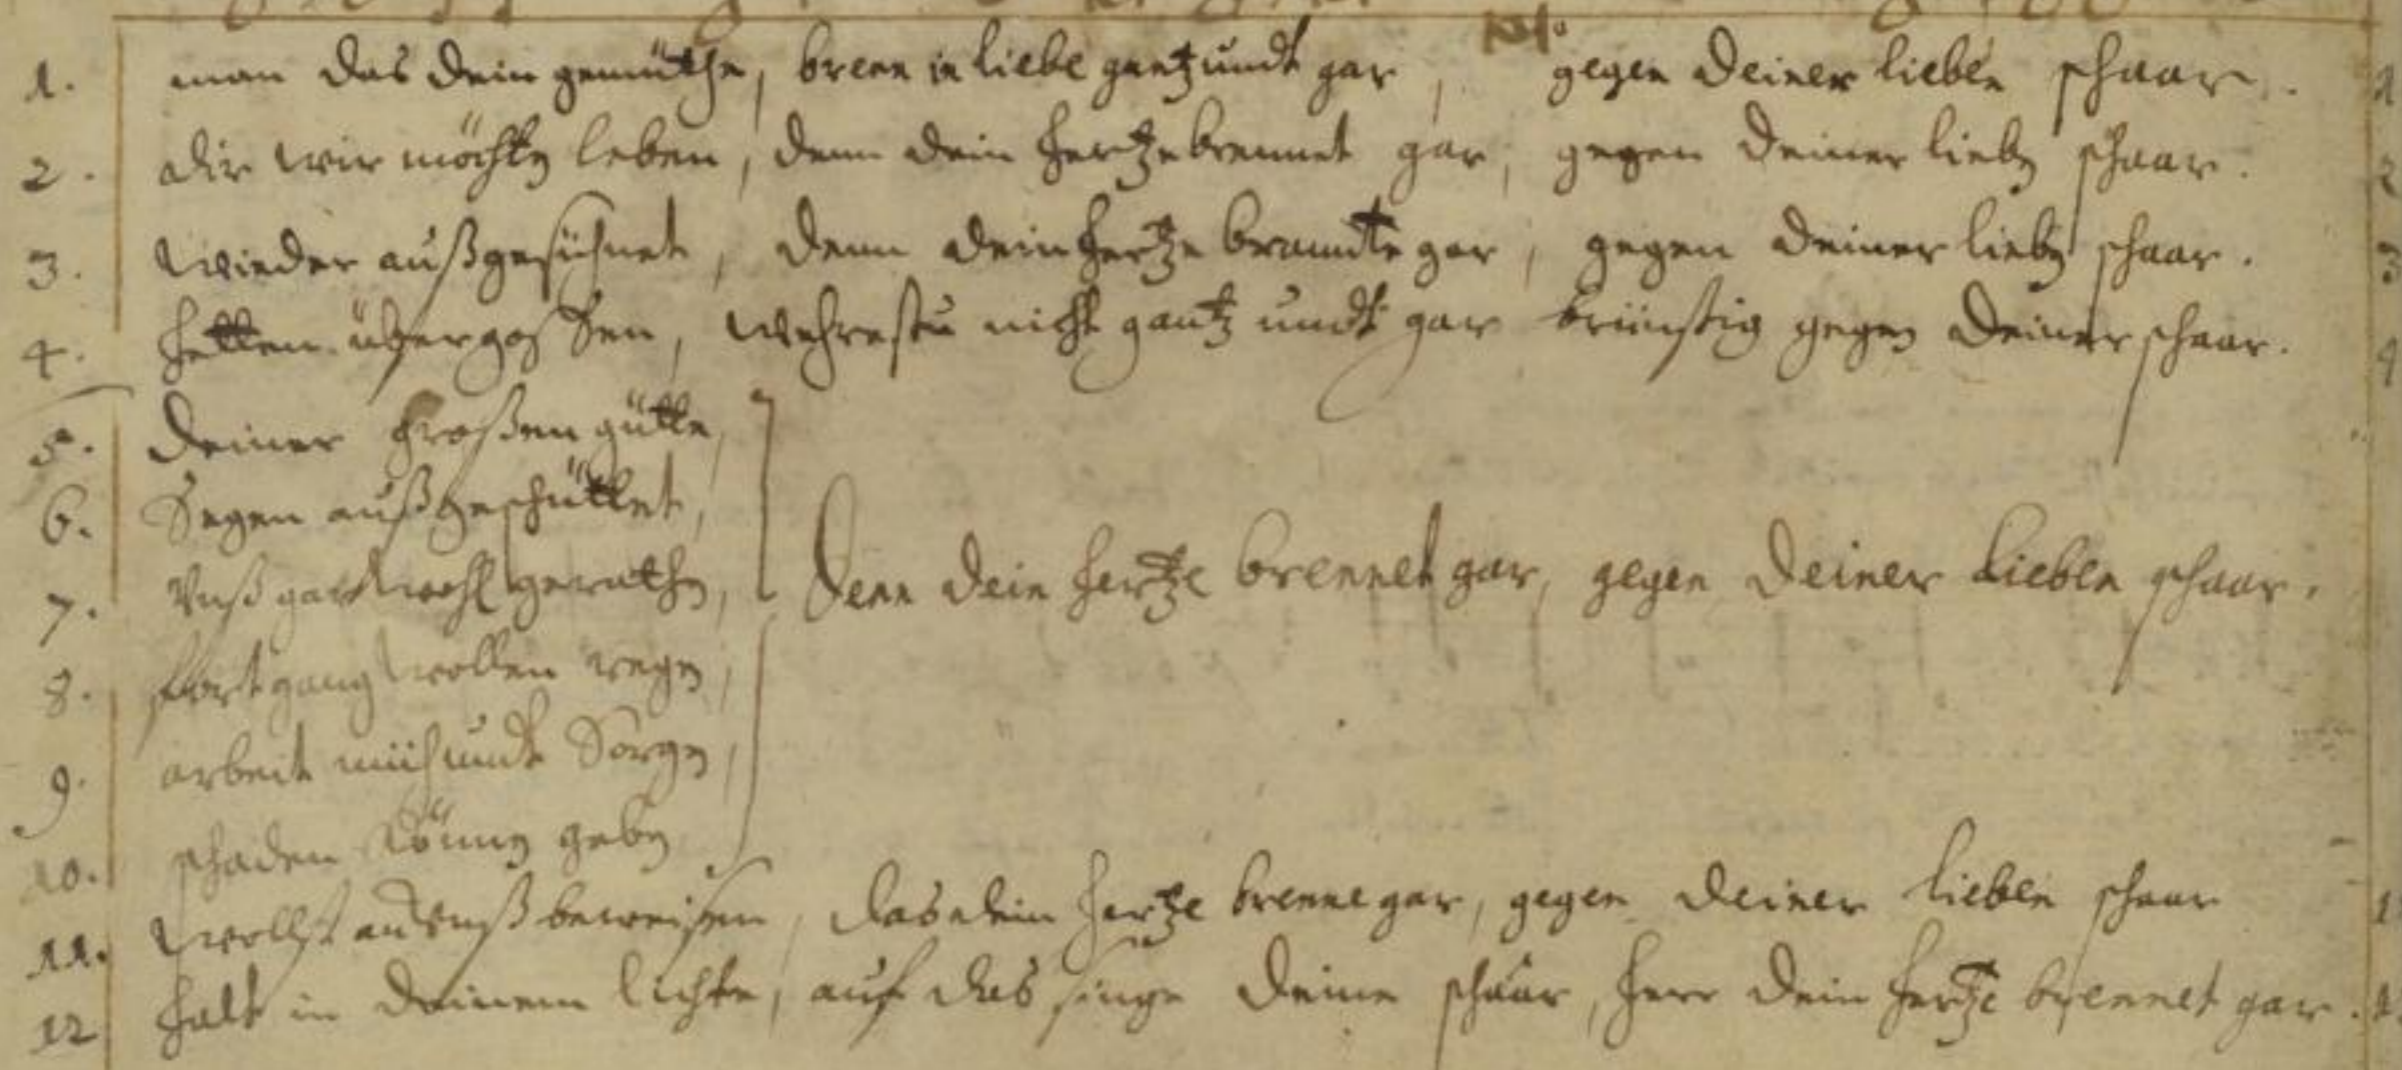 1. man das dein gemüthe, brenn in liebe gantz undt gar, gegen deiner lieben schaar. 1
2. dir wir möchten leben, denn dein hertze brennet gar, gegen deiner lieben schaar. 2
3. wieder außgesühnet, denn dein hertze brandte gar, gegen deiner lieben schaar. 3
4. hetten übergossen, wehrestu nicht gantz undt gar brünstig gegen deiner schaar. 4
5. deiner großen gütte,
6. Segen außgeschüttet,
7. Vnß gar wohl gerathen, denn dein hertze brennet gar, gegen deiner lieben schaar.
8. fortgang wollen regen,
9. arbeit müh undt Sorgen,
10. schaden können geben
11. wollst an Vnß beweisen, das dein hertze brenne gar, gegen deiner lieben schaar
12 halt in deinem lichte, auf das singe deine schaar, herr dein hertze brennet gar.